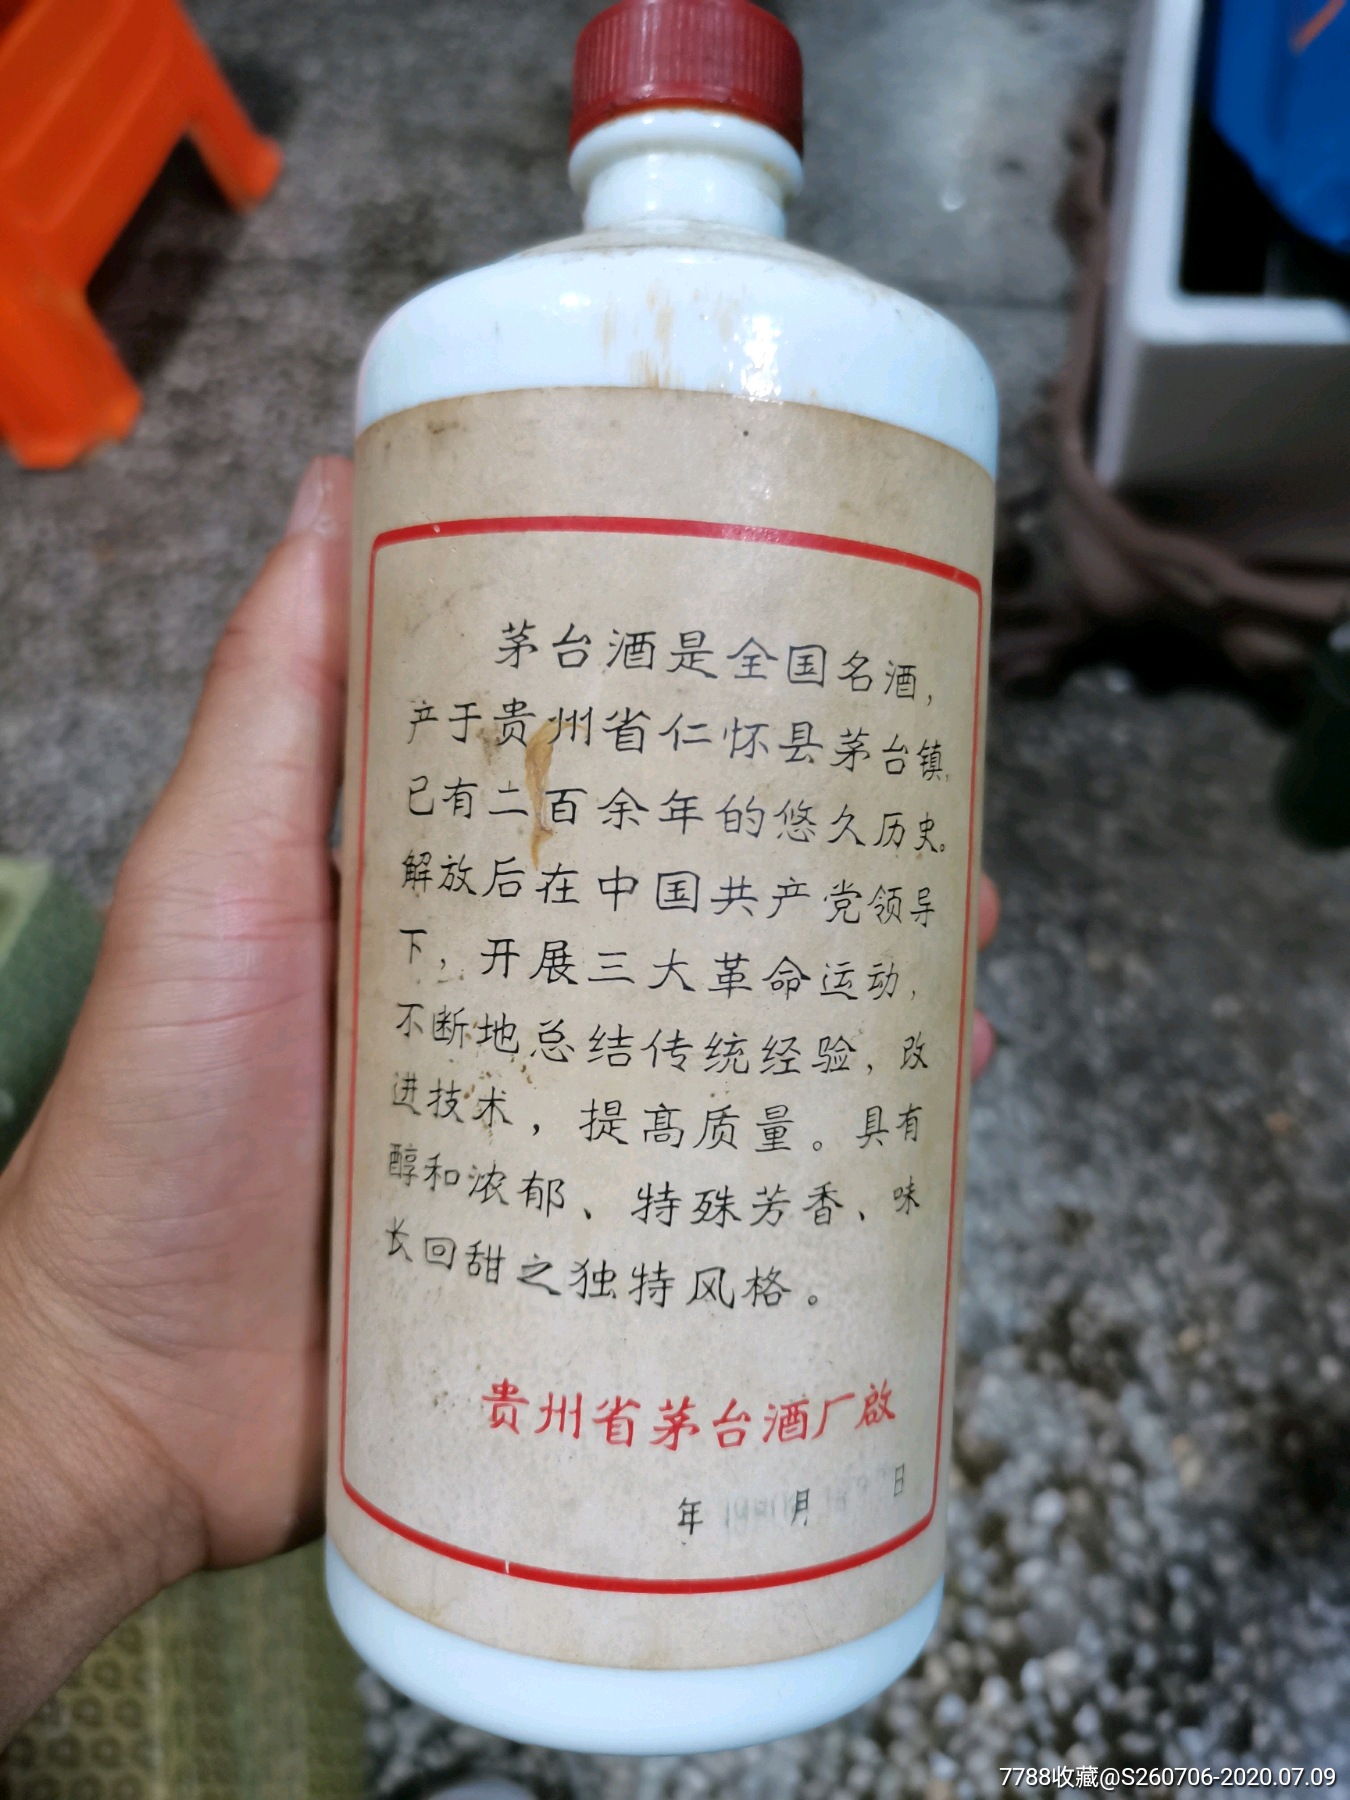 茅台酒是全国名酒，
产于贵州省仁怀县茅台镇，
已有二百余年的悠久历史。
解放后在中国共产党领导
下，开展三大革命运动，
不断地总结传统经验，改
进技术，提高质量。具有
醇和浓郁、特殊芳香、味
长回甜之独特风格。
贵州省茅台酒厂啟
年 月 日
7788收藏@S260706-2020.07.09